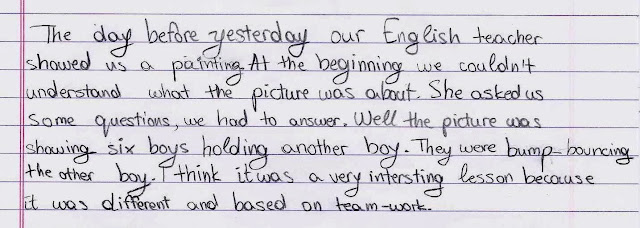 The day before yesterday our English teacher
showed us a painting. At the beginning we couldn't
understand what the picture was about. She asked us
some questions, we had to answer. Well the picture was
showing six boys holding another boy. They were bump-bouncing
the other boy. I think it was a very intersting lesson because
it was different and based on team-work.